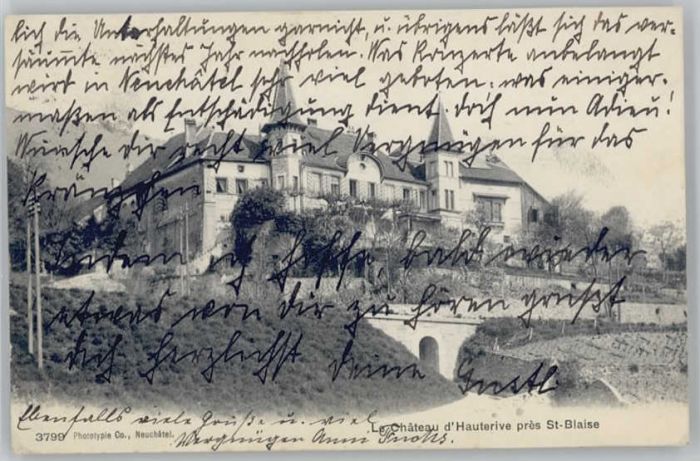 lich die Unterhaltungen garnicht, u. übrigens läßt sich das ver-
säumte nächstes Jahr nachholen. Was Konzerte anbelangt
wird in Neuchâtel sehr viel geboten; was einiger-
maßen als Entschädigung dient. Doch nun Adieu!
Wünsche dir recht viel Vergnügen für das
Kränzchen.
Indem ich hoffe, bald wieder
etwas von Dir zu hören grüßt
dich herzlichst deine Gustl.
Ebenfalls viele Grüße u. viel
Vergnügen Anni
Le Château d'Hauterive près St-Blaise
3799 Phototypie Co., Neuchâtel.